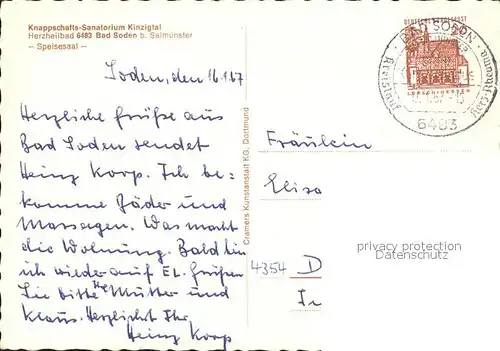 Knappschafts-Sanatorium Kinzigtal
Herzheilbad 6483 Bad Soden b. Salmünster
– Speisesaal –
Soden, den 16.1.67
Herzliche Grüße aus
Bad Soden sendet
Heinz Korp. Ich be-
komme Bäder und
Massagen. Was macht
die Wohnung. Bald bin
ich wieder auf EL. Grüßen
Sie bitte Mutter und
Klaus. Herzlichst Ihr
Heinz Korp
Cramers Kunstanstalt KG, Dortmund
DEUTSCHE BUNDESPOST
BAD SODEN
6483
Fräulein
Elisa
privacy protection
Datenschutz
4354 D